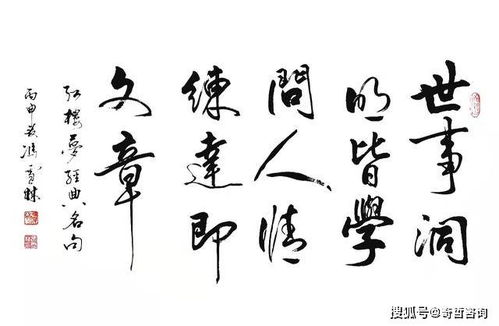 世事洞
明皆學
問人情
練達即
文章
红樓夢經典名句
丙申
搜狐号@奇哲咨询